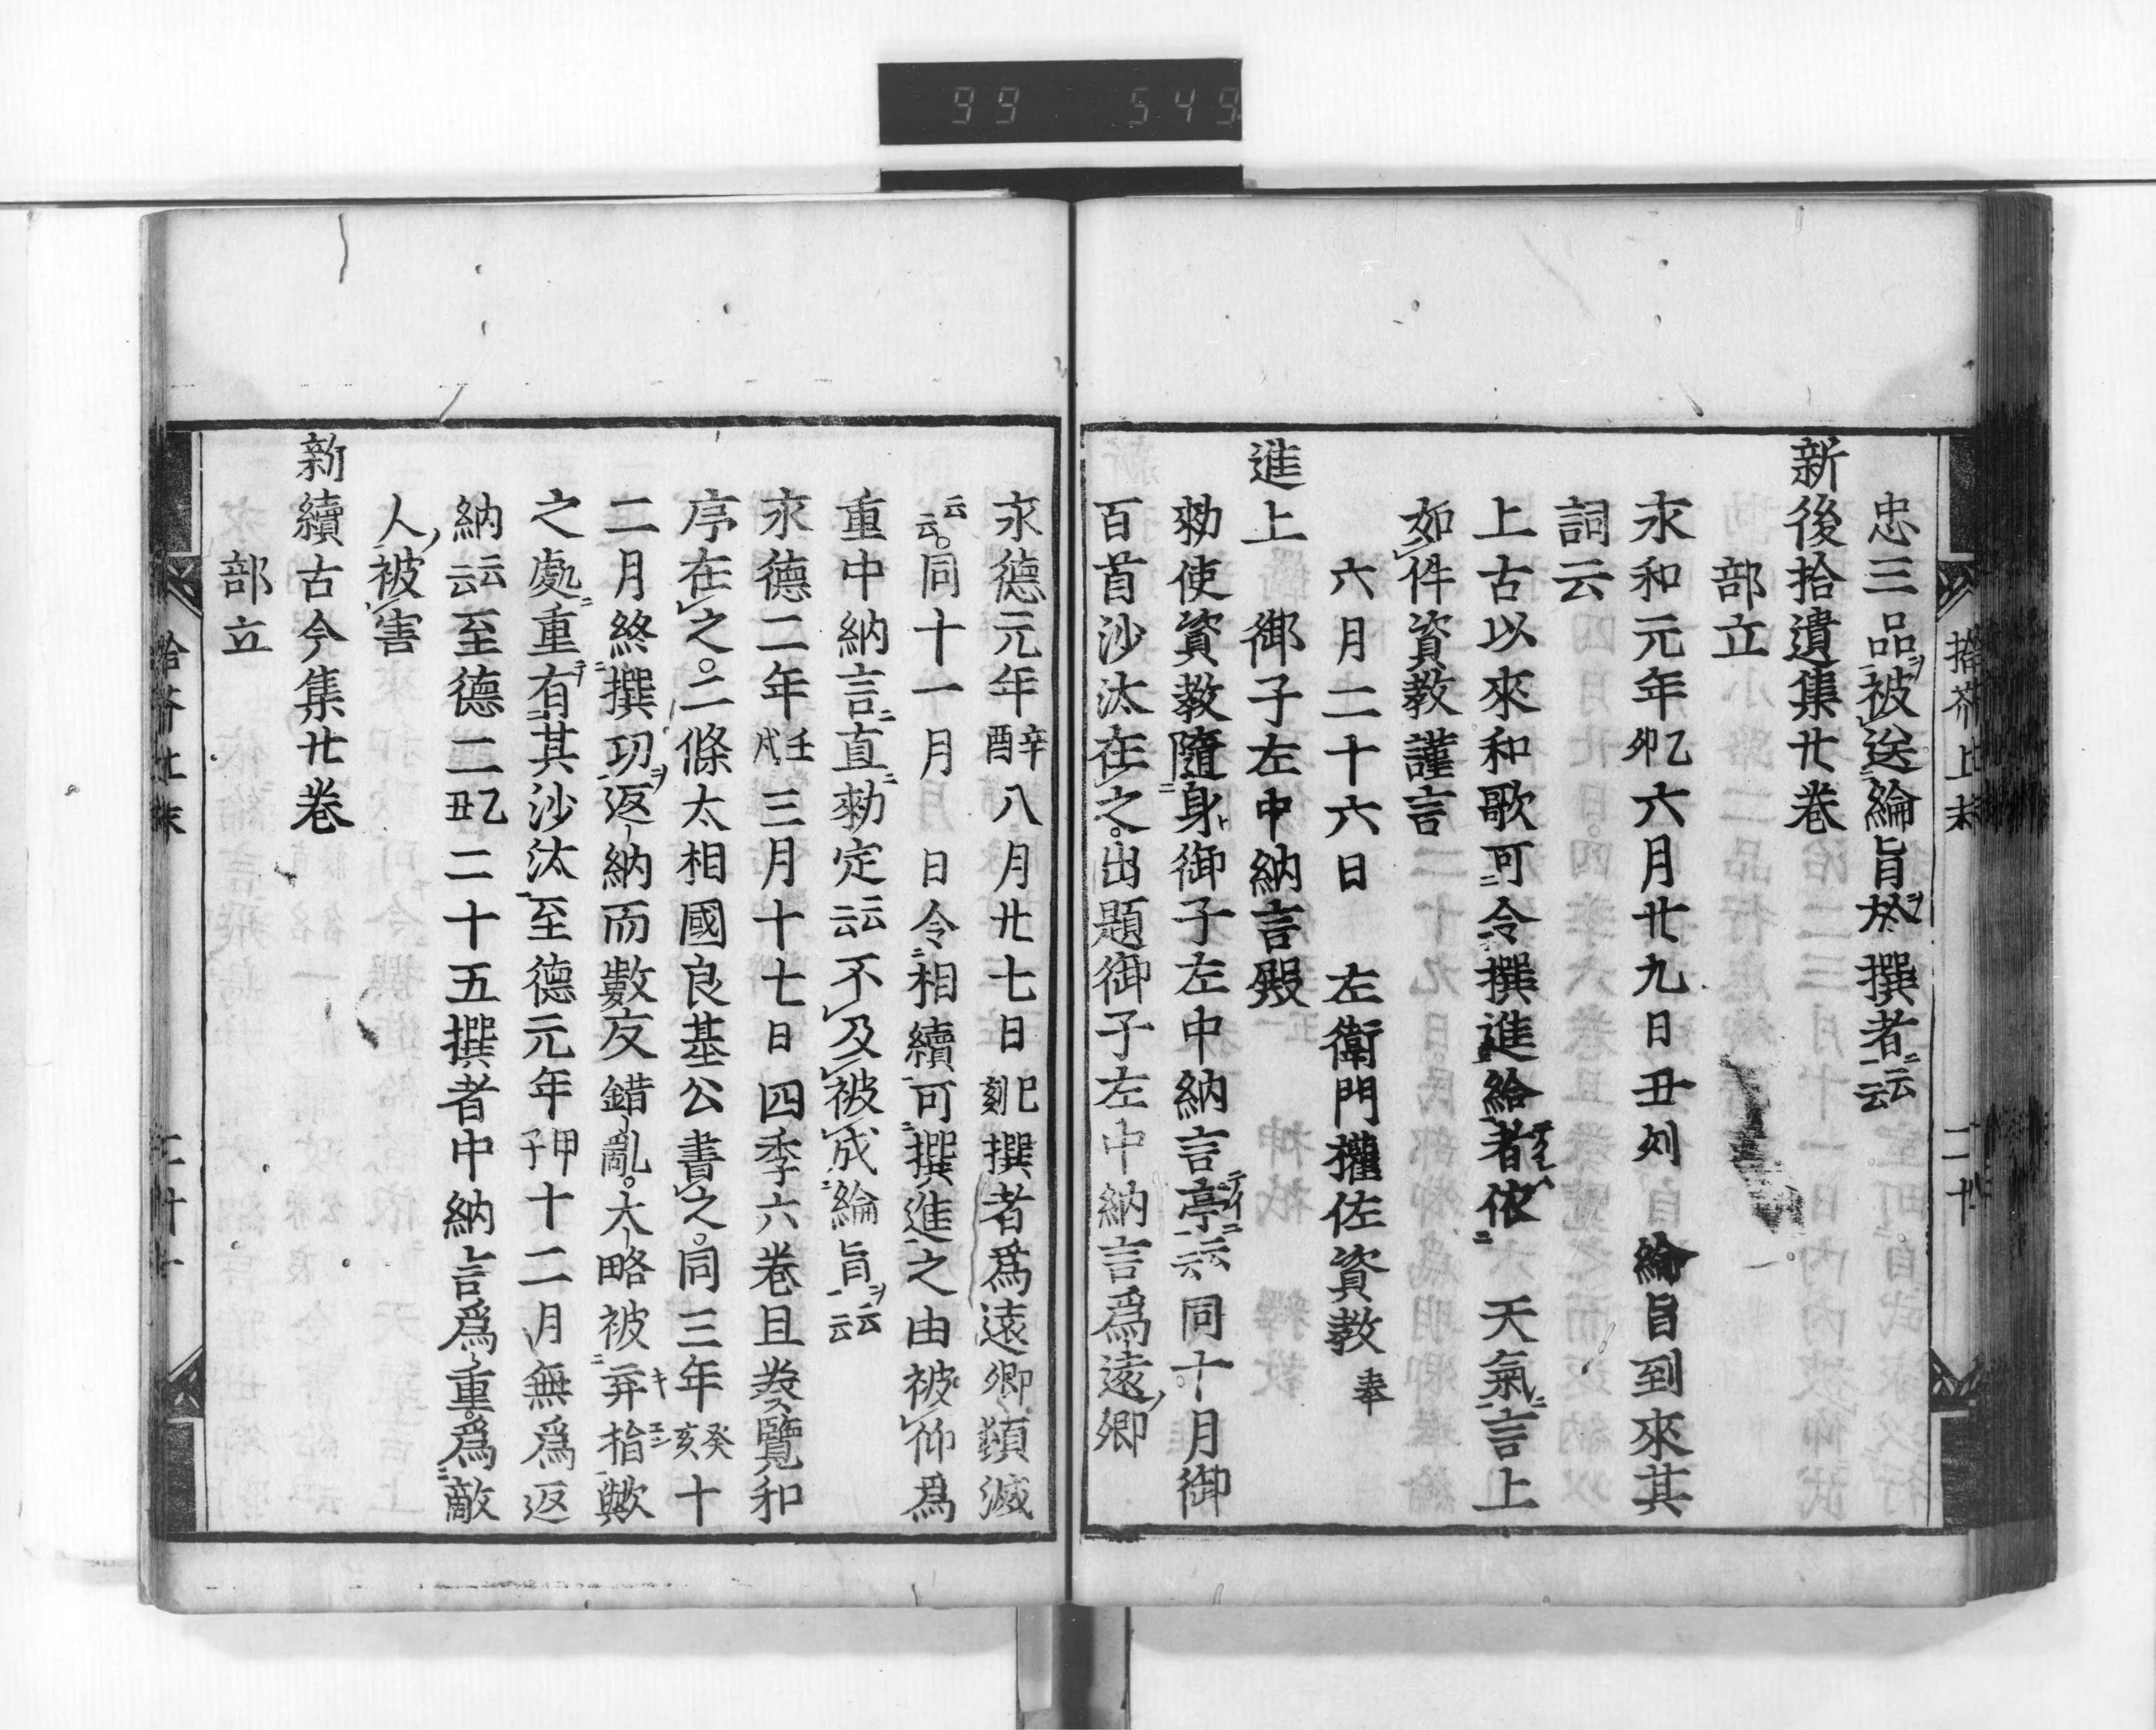 99 549
拾芥上末 二十
忠三品被送綸旨於撰者云云
新後拾遺集廿卷
部立
永和元年乙卯六月廿九日丑刻 綸旨到來其
詞云
上古以來和歌可令撰進給者依 天氣言上
如件資教謹言
六月二十六日 左衛門權佐資教奉
進上 御子左中納言殿
勅使資教隨身御子左中納言亭云云同十月御
百首沙汰在之出題御子左中納言爲遠卿
永德元年辛酉八月廿七日巳刻撰者爲遠卿頓滅
云云同十一月 日令相續可撰進之由被仰爲
重中納言直勅定云云不及被成綸旨云云
永德二年壬戌三月十七日四季六卷且奏覽和
序在之二條太相國良基公書之同三年癸亥十
二月終撰功返納而數友錯亂大略被弃指歟
之處重有其沙汰至德元年甲子十二月無爲返
納云云至德二乙丑二十五撰者中納言爲重爲敵
人被害
新續古今集廿卷
部立